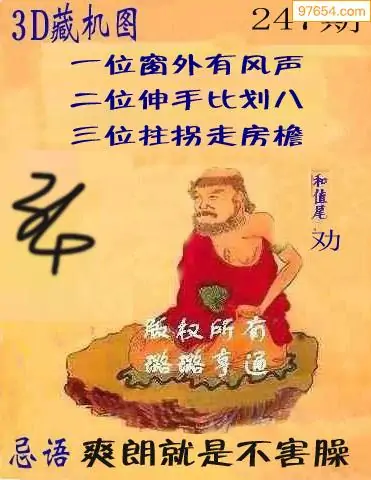 97654.com
3D藏机图
247期
一位窗外有风声
二位伸手比划八
三位拄拐走房檐
和值尾
劝
版权所有
璐璐亨通
忌语 爽朗就是不害臊